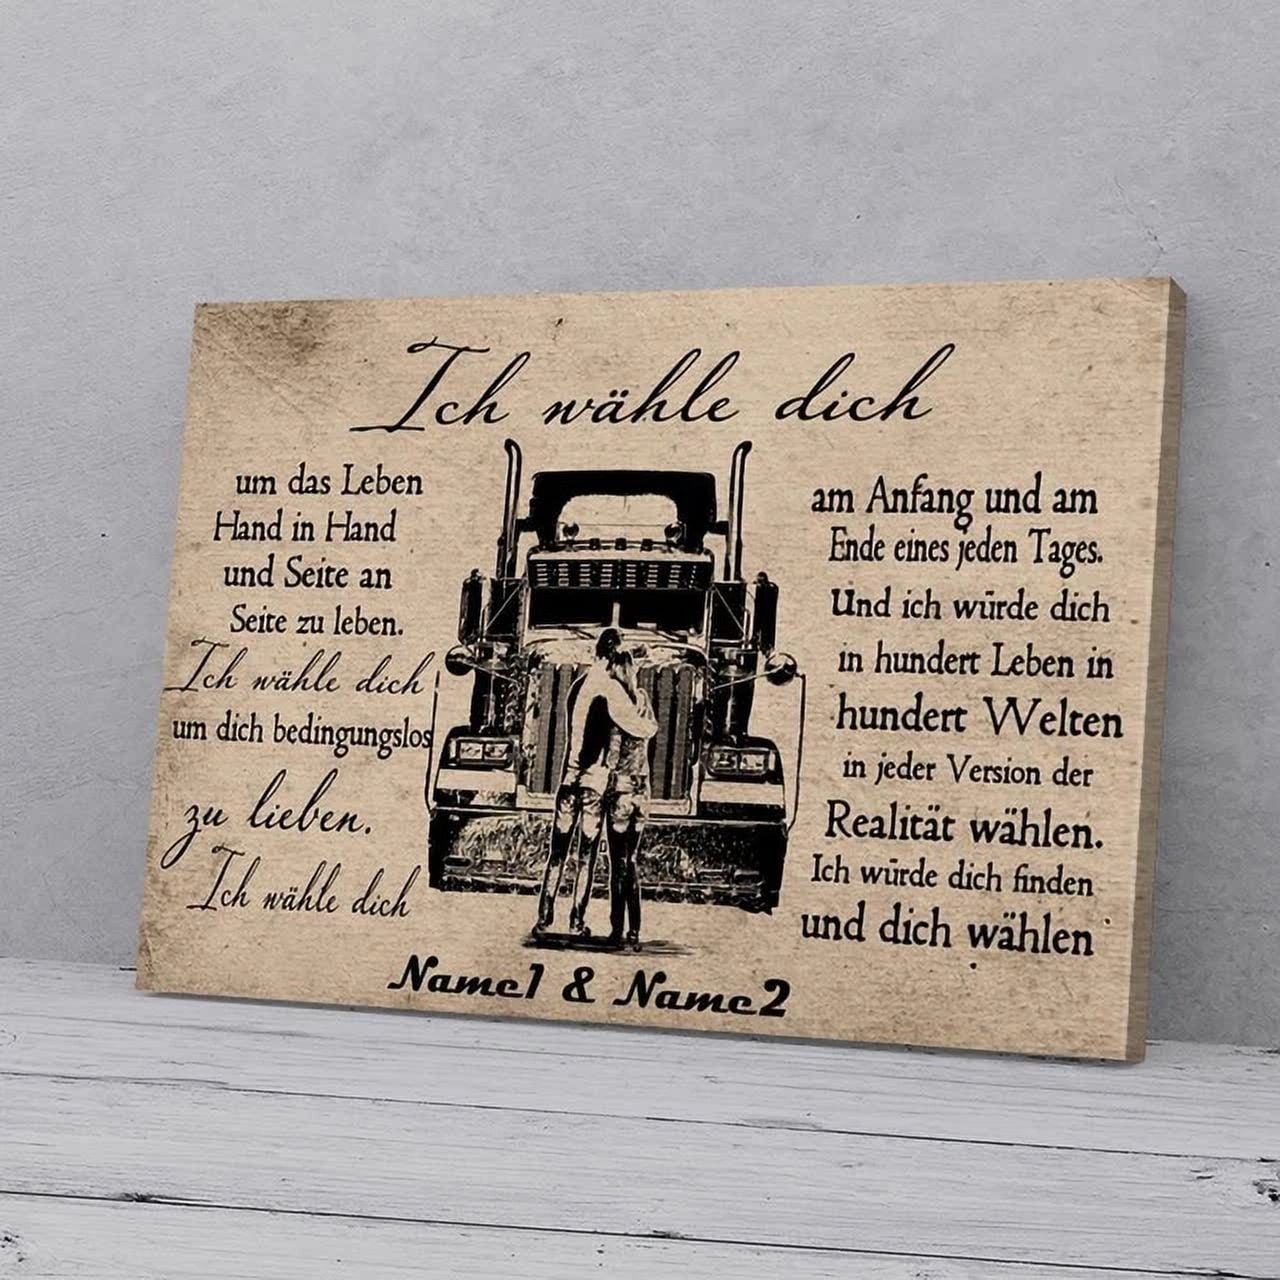 Ich wähle dich
um das Leben
Hand in Hand
und Seite an
Seite zu leben.
Ich wähle dich
um dich bedingungslos
zu lieben.
Ich wähle dich
am Anfang und am
Ende eines jeden Tages.
Und ich würde dich
in hundert Leben in
hundert Welten
in jeder Version der
Realität wählen.
Ich würde dich finden
und dich wählen
Name1 & Name2